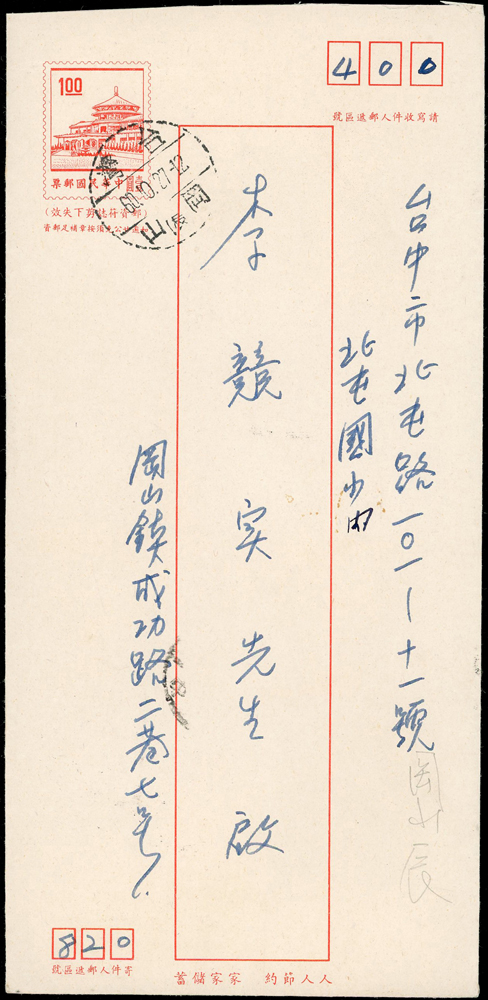 400
請寫收件人郵遞區號
台中市北屯路一〇一~十一號
北屯國小內
李競实先生啟
岡山鎮成功路二巷七号
1.00
中華民國郵票
(郵資符誌剪下失效)
台灣
60.10.27-12
820
寄件人郵遞區號
人人節約 家家儲蓄